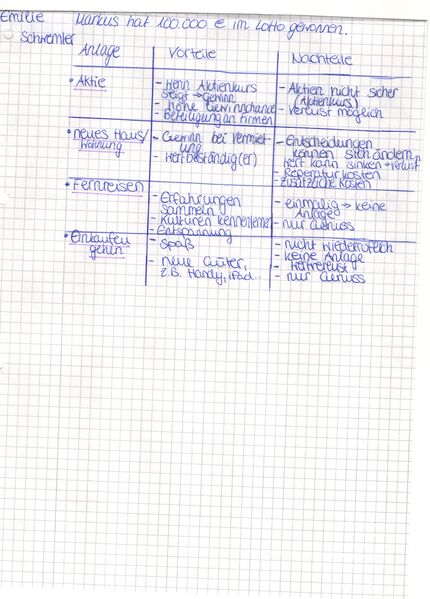 Emilie Markus hat 100.000 € im Lotto gewonnen.
Schremler
Anlage Vorteile Nachteile
• Aktie
- Wenn Aktienkurs
steigt → Gewinn
- hohe Gewinnchance
- Beteiligung an Firmen
- Aktien nicht sicher
(Aktienkurs)
- Verlust möglich
• neues Haus/
Wohnung
- Gewinn bei Vermiet-
ung
- Wertbeständig(er)
- Entscheidungen
können sich ändern
- Wert kann sinken → Verlust
- Reperaturkosten
- zusätzliche Kosten
• Fernreisen
- Erfahrungen
sammeln
- Kulturen kennenlernen
- Entspannung
- einmalig → keine
Anlage
- nur Genuss
• Einkaufen
gehen
- Spaß
- neue Güter,
z.B. Handy, iPad...
- nicht wiederruflich
- keine Anlage
- Wertverlust
- nur Genuss